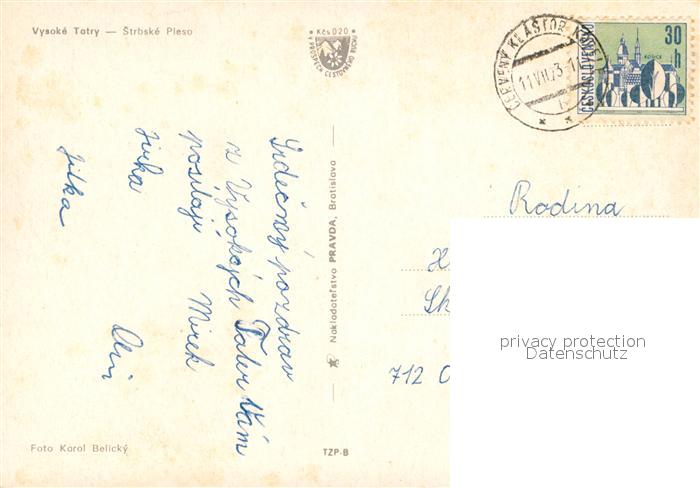 Vysoké Tatry — Štrbské Pleso
Kčs 0.20
V PROSPECH CESTOVNÉHO RUCHU
ČERVENÝ KLÁŠTOR
11.VII.73-1
ČESKOSLOVENSKO
30
h
KOŠICE
Srdečný pozdrav
z Vysokých Tater Vám
posílají Mirek
Jirka
Jitka
Nakladateľstvo PRAVDA, Bratislava
Rodina
712 O
privacy protection
Datenschutz
Foto Karol Belický
TZP-B